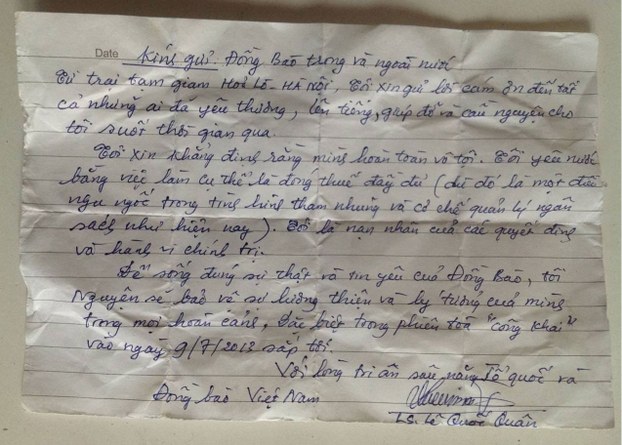 Date
Kính gửi: Đồng Bào trong và ngoài nước
Từ trại tạm giam Hoả Lò - Hà Nội, Tôi xin gửi lời cảm ơn đến tất
cả những ai đã yêu thương, lên tiếng, giúp đỡ và cầu nguyện cho
tôi suốt thời gian qua.
Tôi xin khẳng định rằng mình hoàn toàn vô tội. Tôi yêu nước
bằng việc làm cụ thể là đóng thuế đầy đủ (dù đó là một điều
ngu ngốc trong tình hình tham nhũng và cơ chế quản lý ngân
sách như hiện nay). Tôi là nạn nhân của các quyết định
và hành vi chính trị.
Để sống đúng sự thật và tin yêu của Đồng Bào, tôi
Nguyện sẽ bảo vệ sự lương thiện và lý tưởng của mình
trong mọi hoàn cảnh, đặc biệt trong phiên toà "công khai"
vào ngày 9/7/2013 sắp tới.
Với lòng tri ân sâu nặng Tổ quốc và
Đồng bào Việt Nam
LS. Lê Quốc Quân